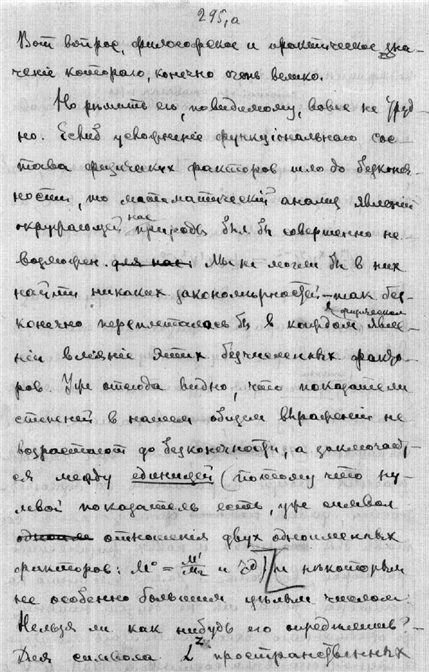 295,а
Вот вопрос, философское и практическое зна-
ченіе котораго, конечно очень велико.
Но решить его, повидимому, вовсе не труд-
но. Еслиб усложненіе функціональнаго сос-
тава физических факторов шло до безконеч-
ности, то математическій анализ явленій
окружающей нас природы был бы совершенно не
возможен. для нас Мы не могли бы в них
найти никаких закономерностей – так без-
конечно переплеталось бы в каждом физическом явле-
ніи вліяніе этих безчисленных факто-
ров. Уже отсюда видно, что показатели
степеней в нашем общем выраженіи не
возрастают до безконечности, а заключают-
ся между единицей (потому что ну-
левой показатель есть уже символ
отношенія двух одноименных
факторов: M° = и
не особенно большим целым числом.
Нельзя ли как нибудь его определить?
Для символа L пространственных